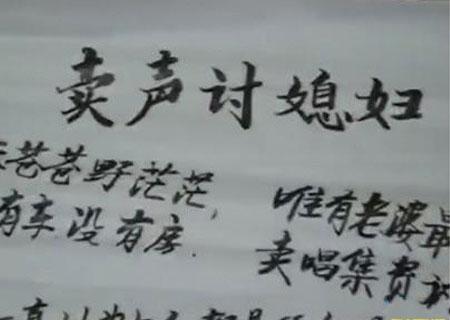 卖声讨媳妇
苍苍野茫茫，
有车没有房.
唯有老婆最
卖唱集费